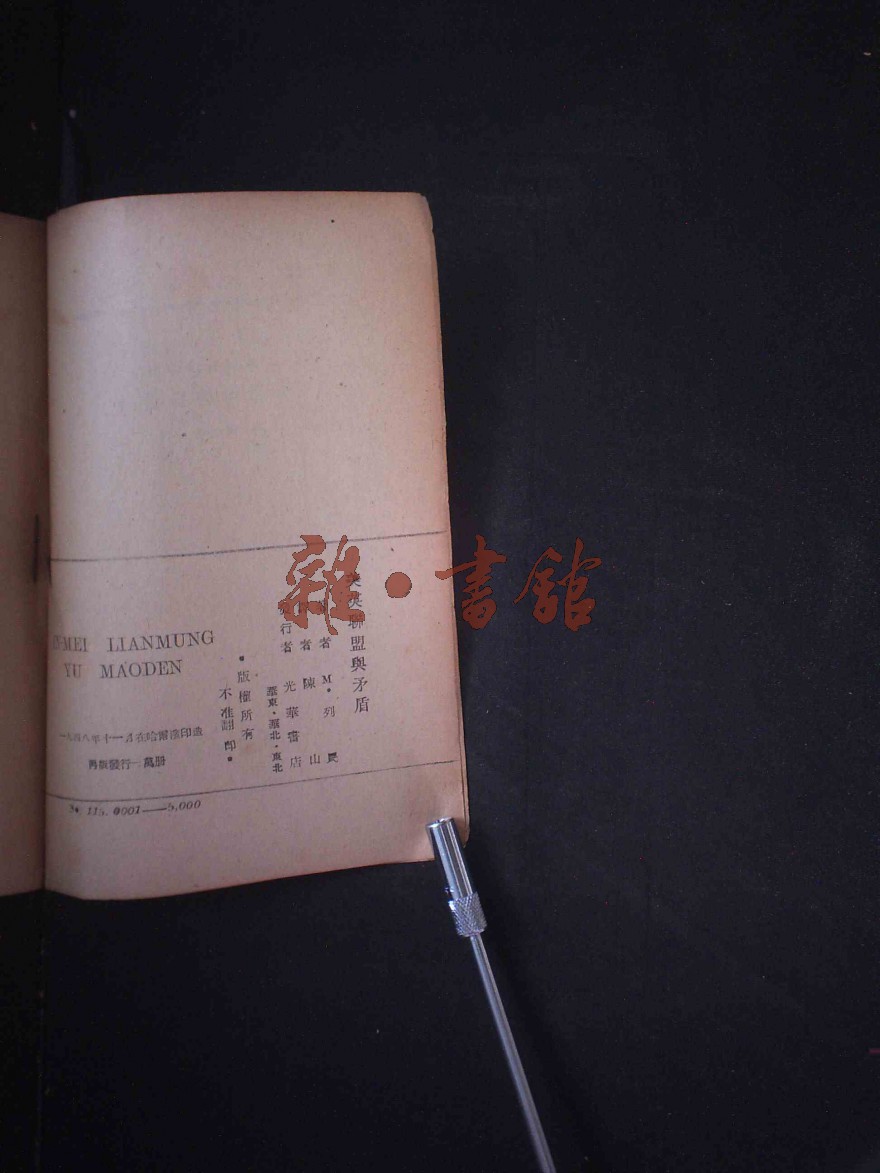 雜·書館
英聯盟與矛盾
者 M·列
者 陳 山
行者 光華書店
華東·華北·東北
•版權所有
不准翻印•
MEI LIANMUNG
YU MAODEN
一九四八年十一月在哈爾濱印造
再版發行一萬册
115. 0001——5,000